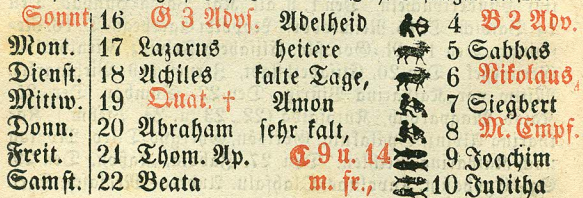 Sonnt 16 G 3 Advs. Adelheid 4 B 2 Adv.
Mont. 17 Lazarus heitere 5 Sabbas
Dienst. 18 Achiles kalte Tage, 6 Nikolaus
Mittw. 19 Quat. † Amon 7 Siegbert
Donn. 20 Abraham sehr kalt, 8 M. Empf.
Freit. 21 Thom. Ap. ☾ 9 u. 14 9 Joachim
Samst. 22 Beata m. fr., 10 Juditha